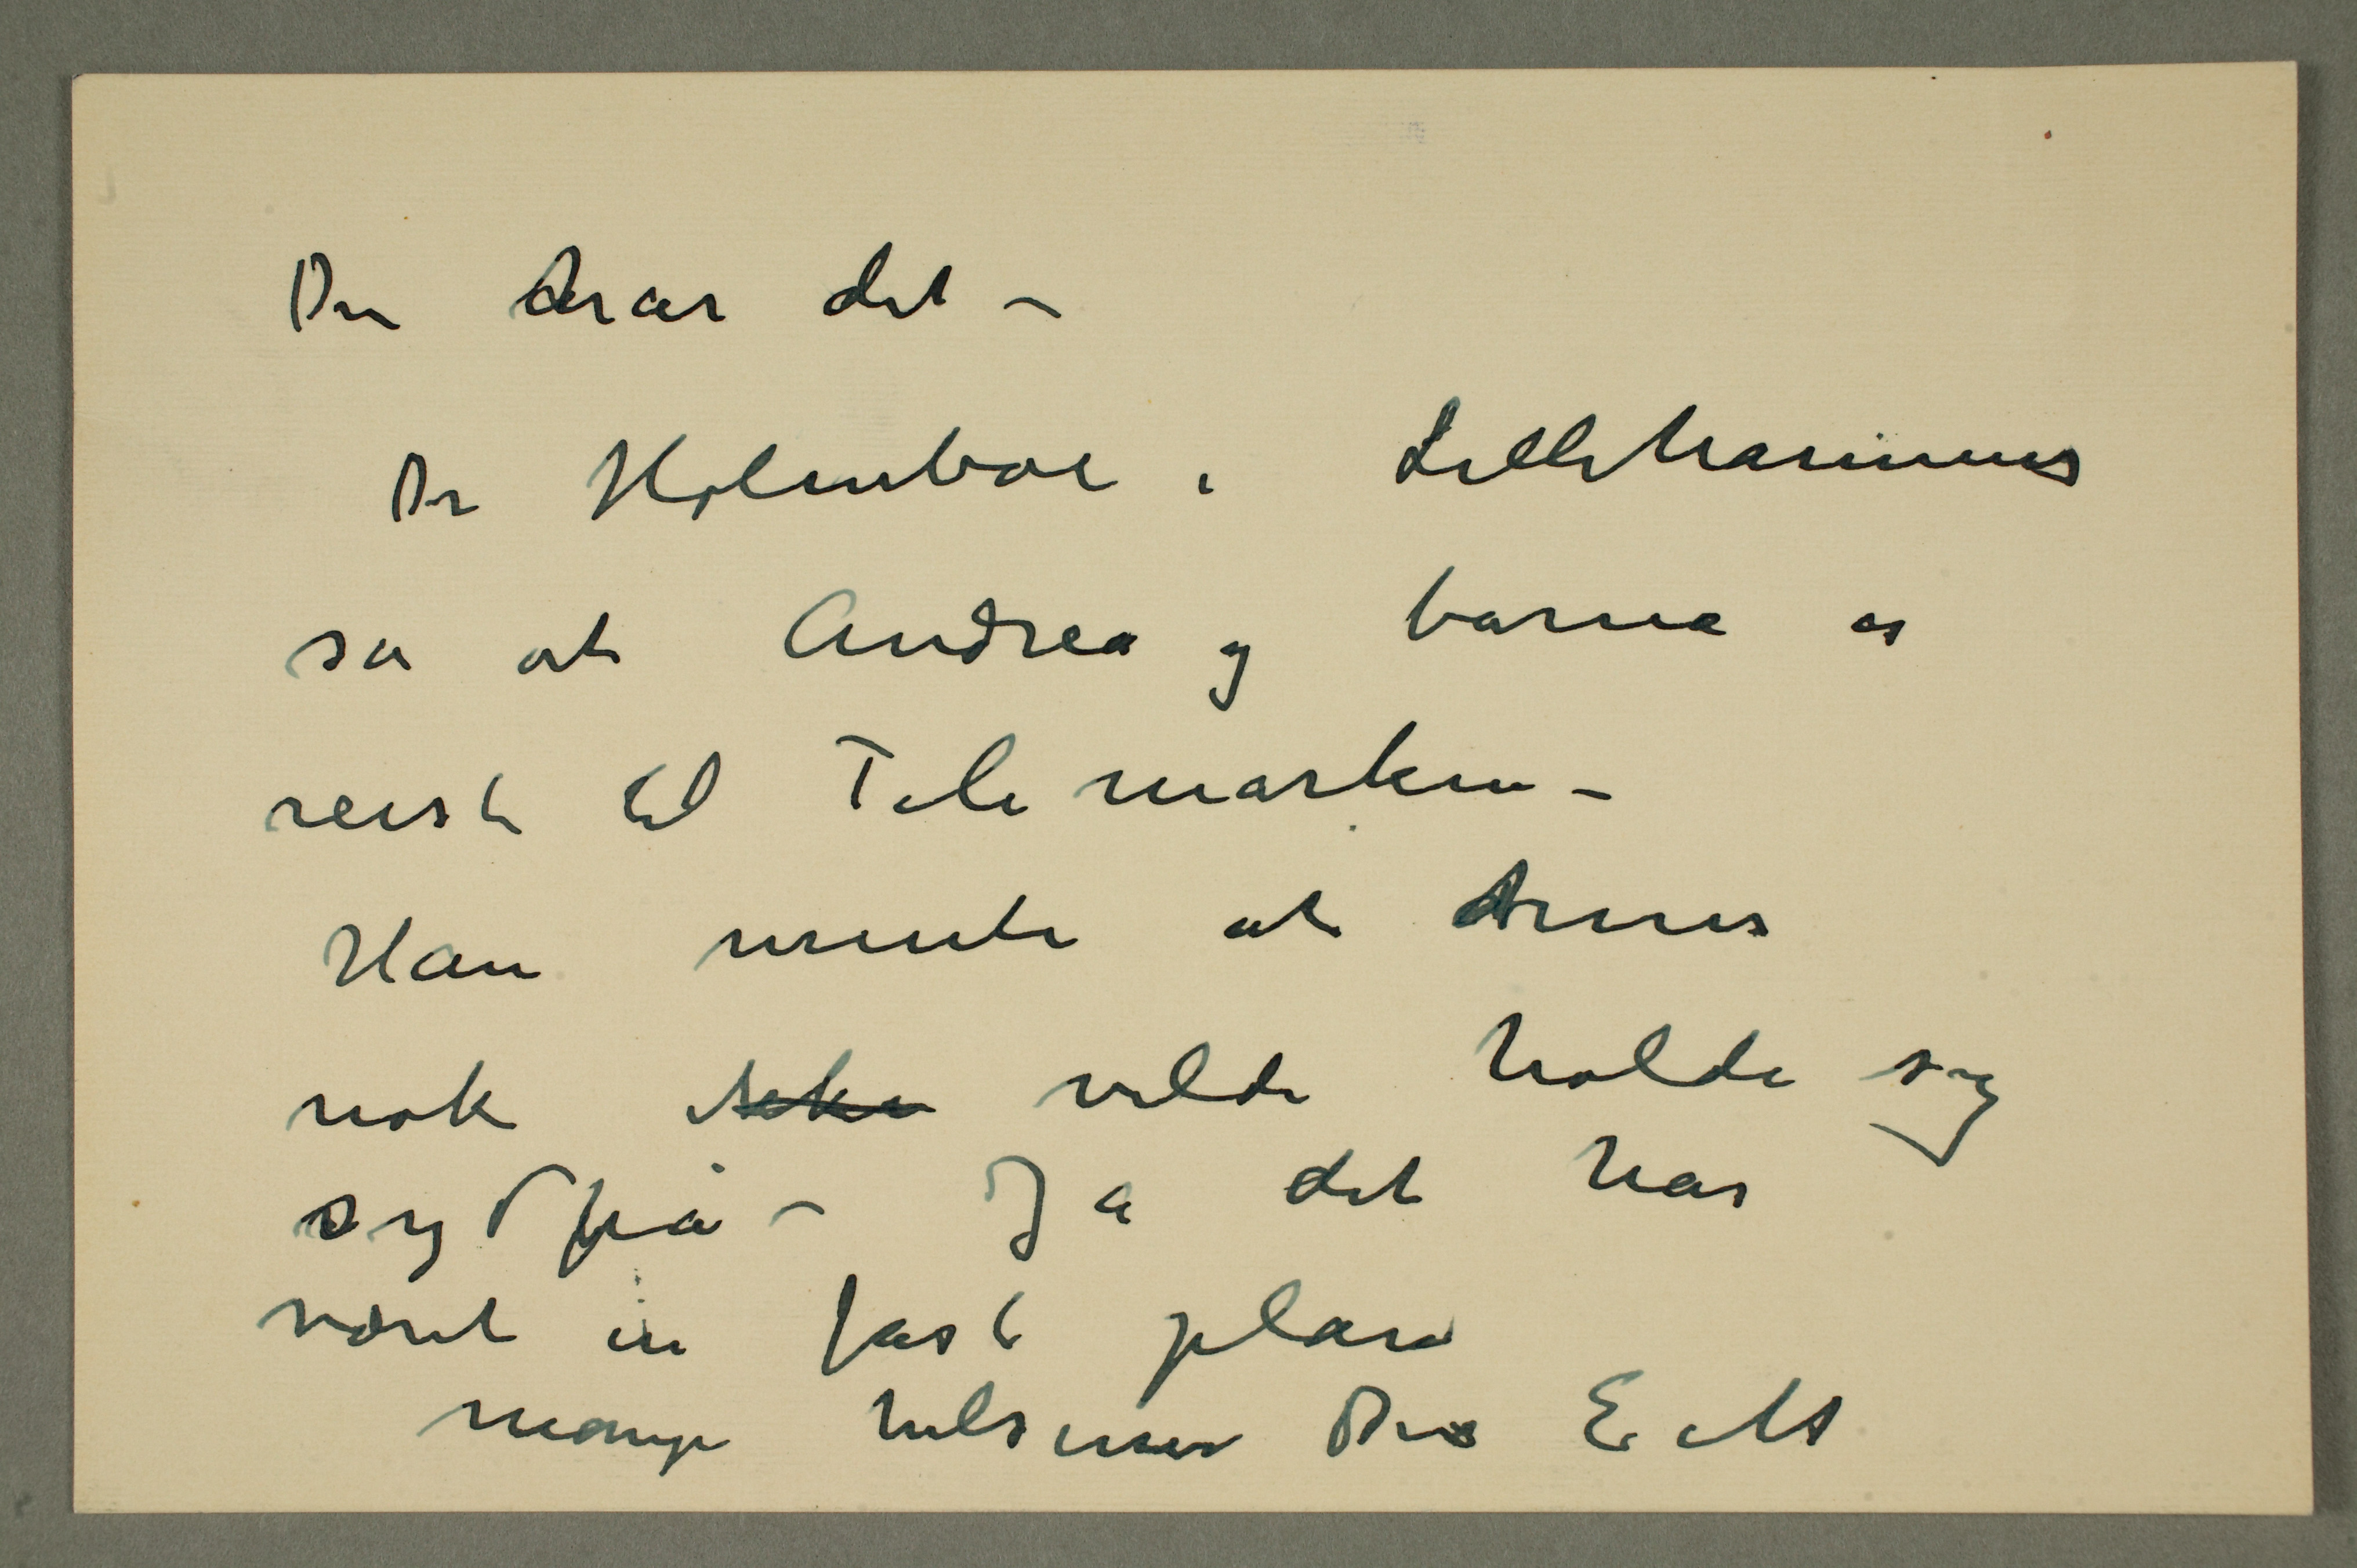 Du har det –
Dr Holmboe i Lillehammer
sa at Andrea og barna er
reist til Telemarken –
Han mente at du
nok ikke vilde holde sig
sydpå – Ja det har
været en fast plan
mange hilsener Din E M